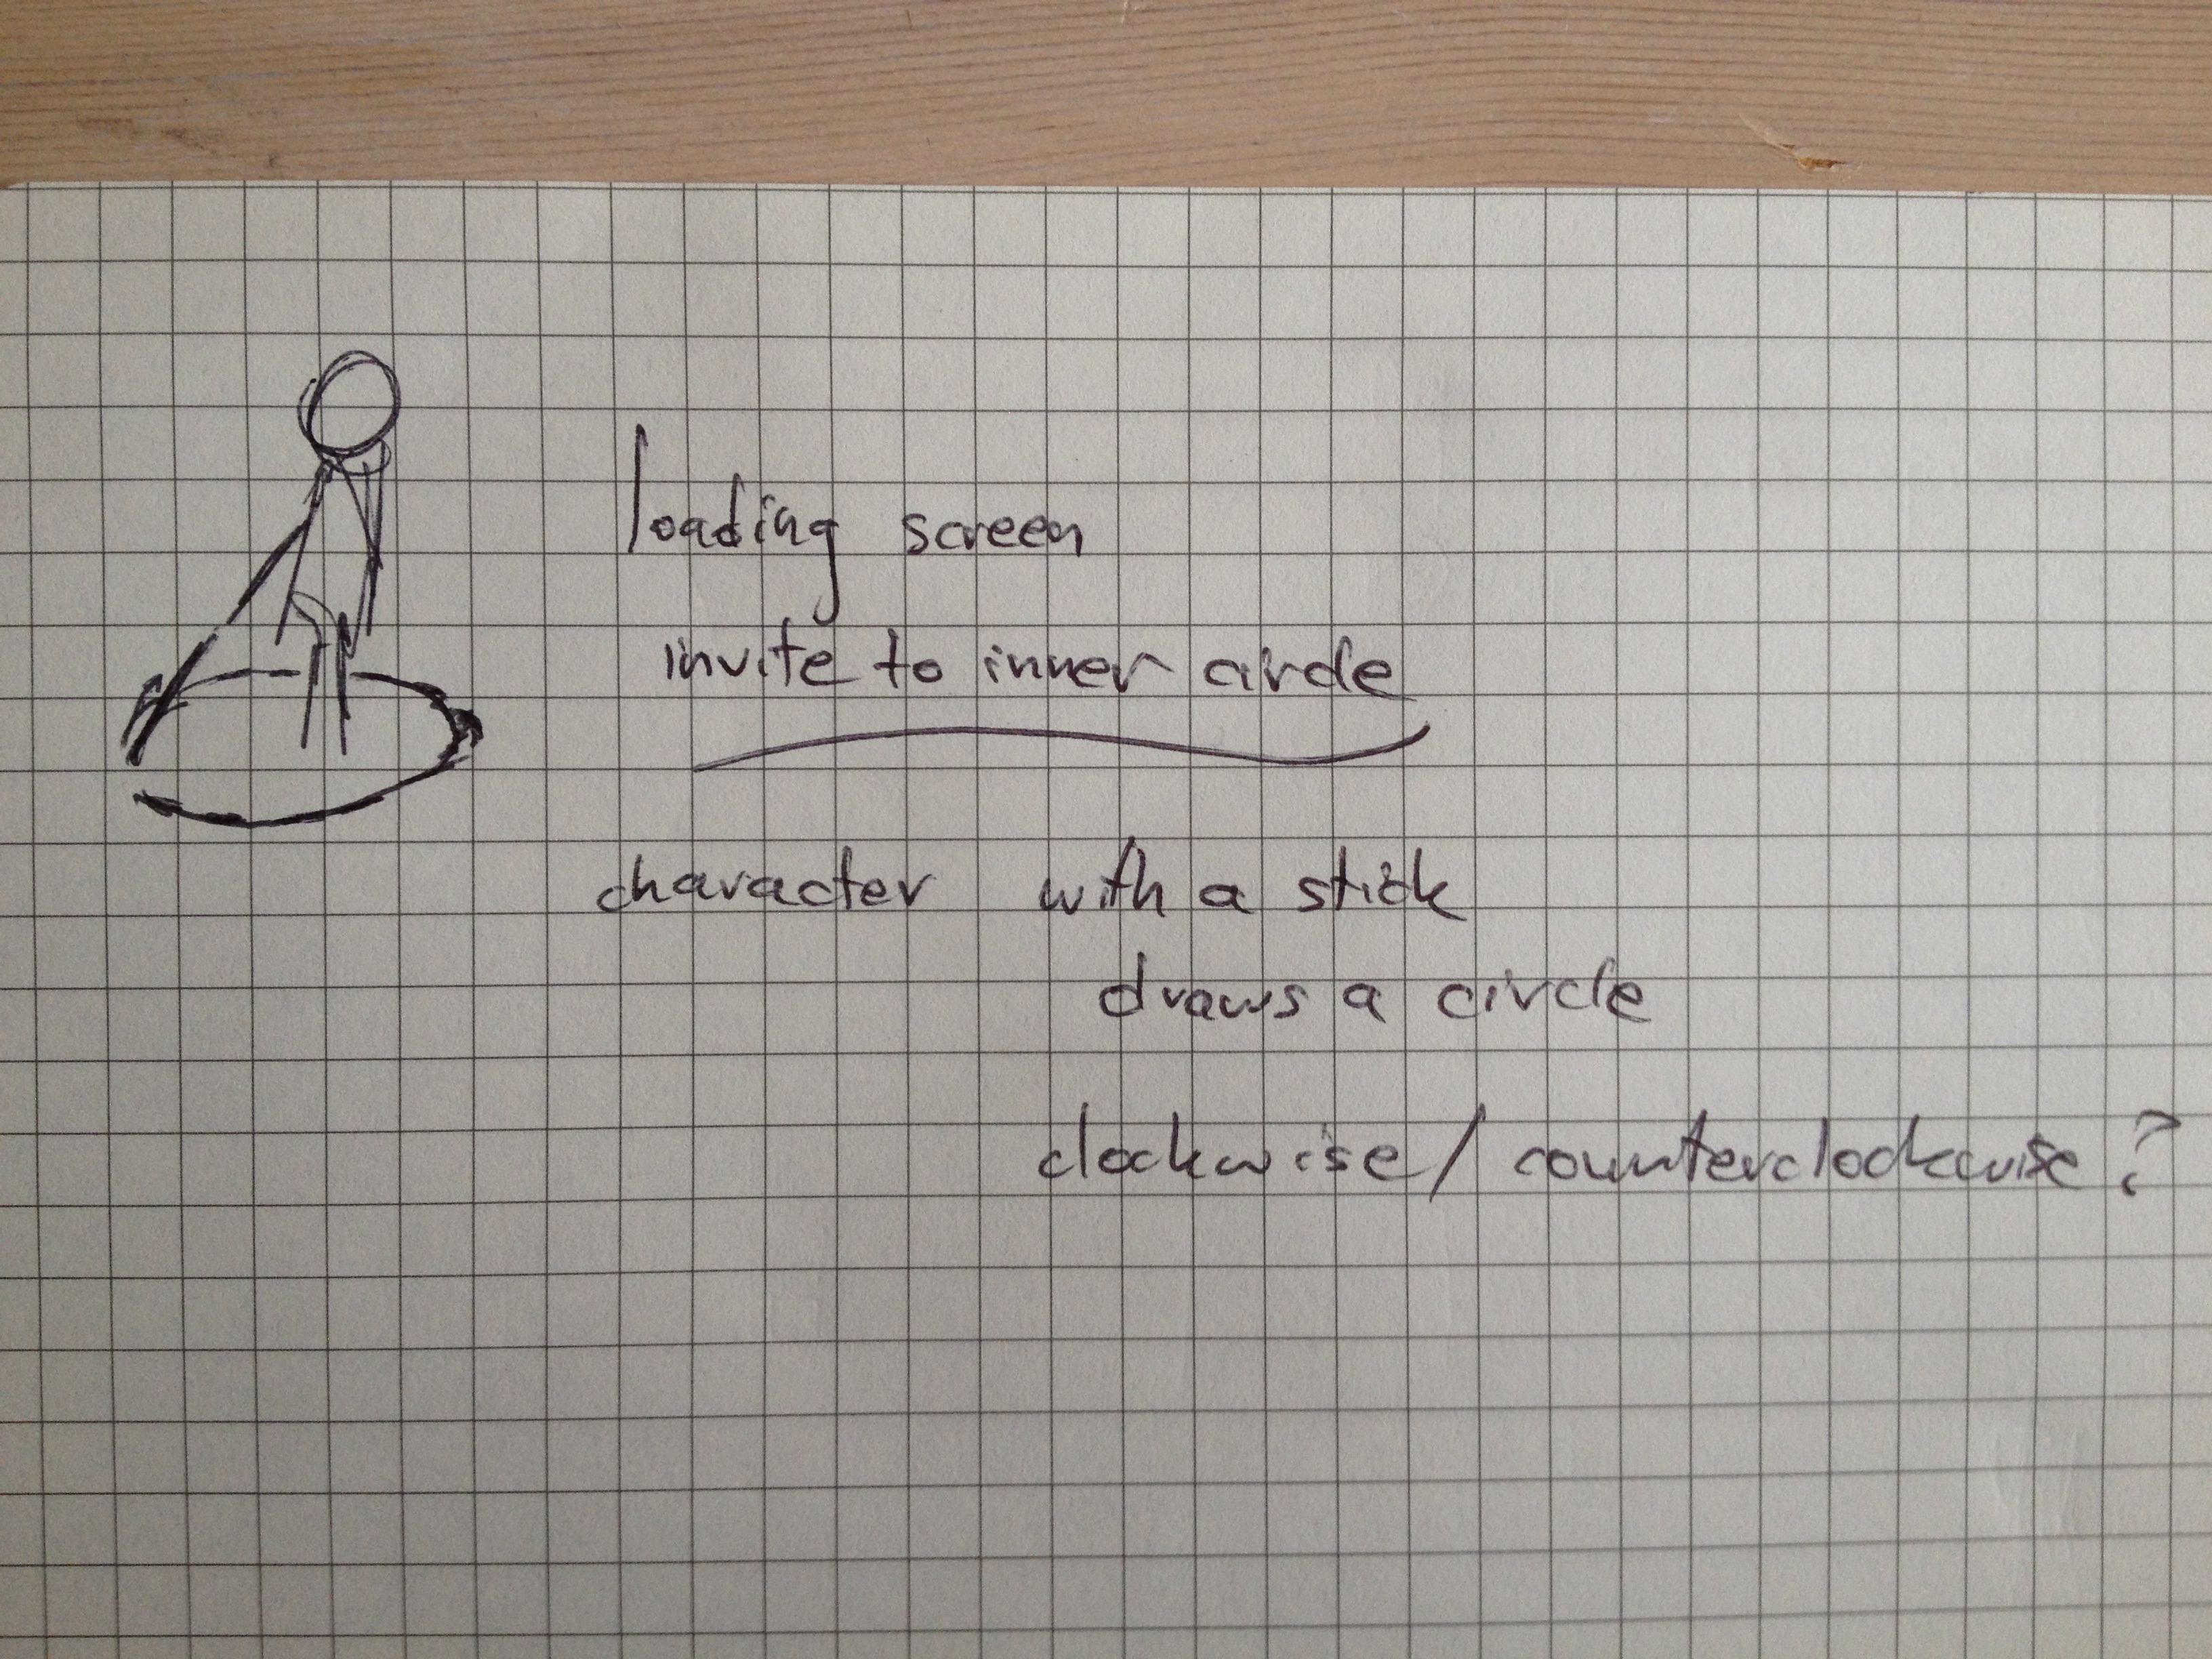 loading screen
invite to inner circle
character with a stick
draws a circle
clockwise / counterclockwise?